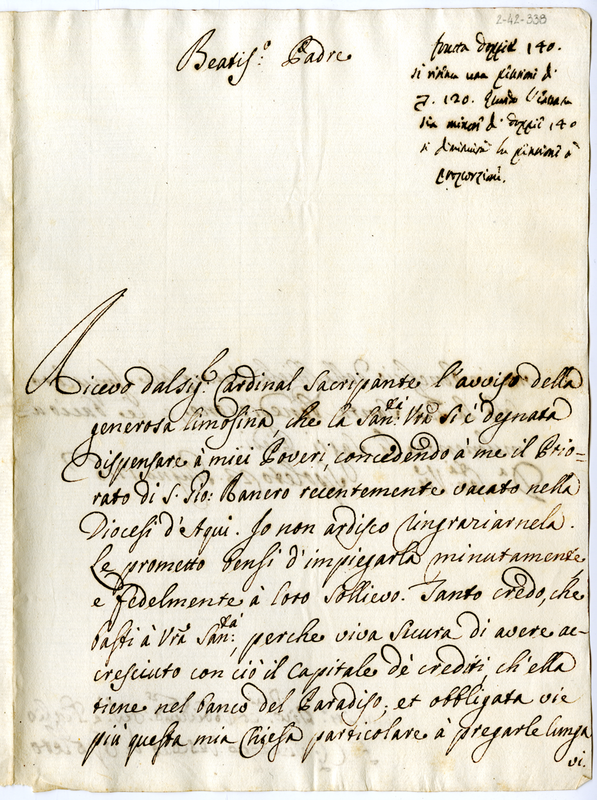 2-42-338
Beatis.º Padre
frutta doppie 140.
si riserva una pensione di
120. quando l'entrata
sia minore di doppie 140
si diminuirà la pensione à
proporzione.
Ricevo dal Sig.r Cardinal Sacripante l'avviso della
generosa limosina, che la San.tà Vra si è degnata
dispensare à miei Poveri, concedendo à me il Prio-
rato di S. Gio: Ranero recentemente vacato nella
Diocesi d'Aqui. Io non ardisco ringraziarnela.
Le prometto bensi d'impiegarla minutamente
e fedelmente à loro sollievo. Tanto credo, che
basti à Vra San.tà, perche viva sicura di avere ac-
cresciuto con ciò il Capitale de crediti, ch'ella
tiene nel banco del Paradiso; et obbligata vie
più questa mia Chiesa particolare à pregarle lunga
vi.